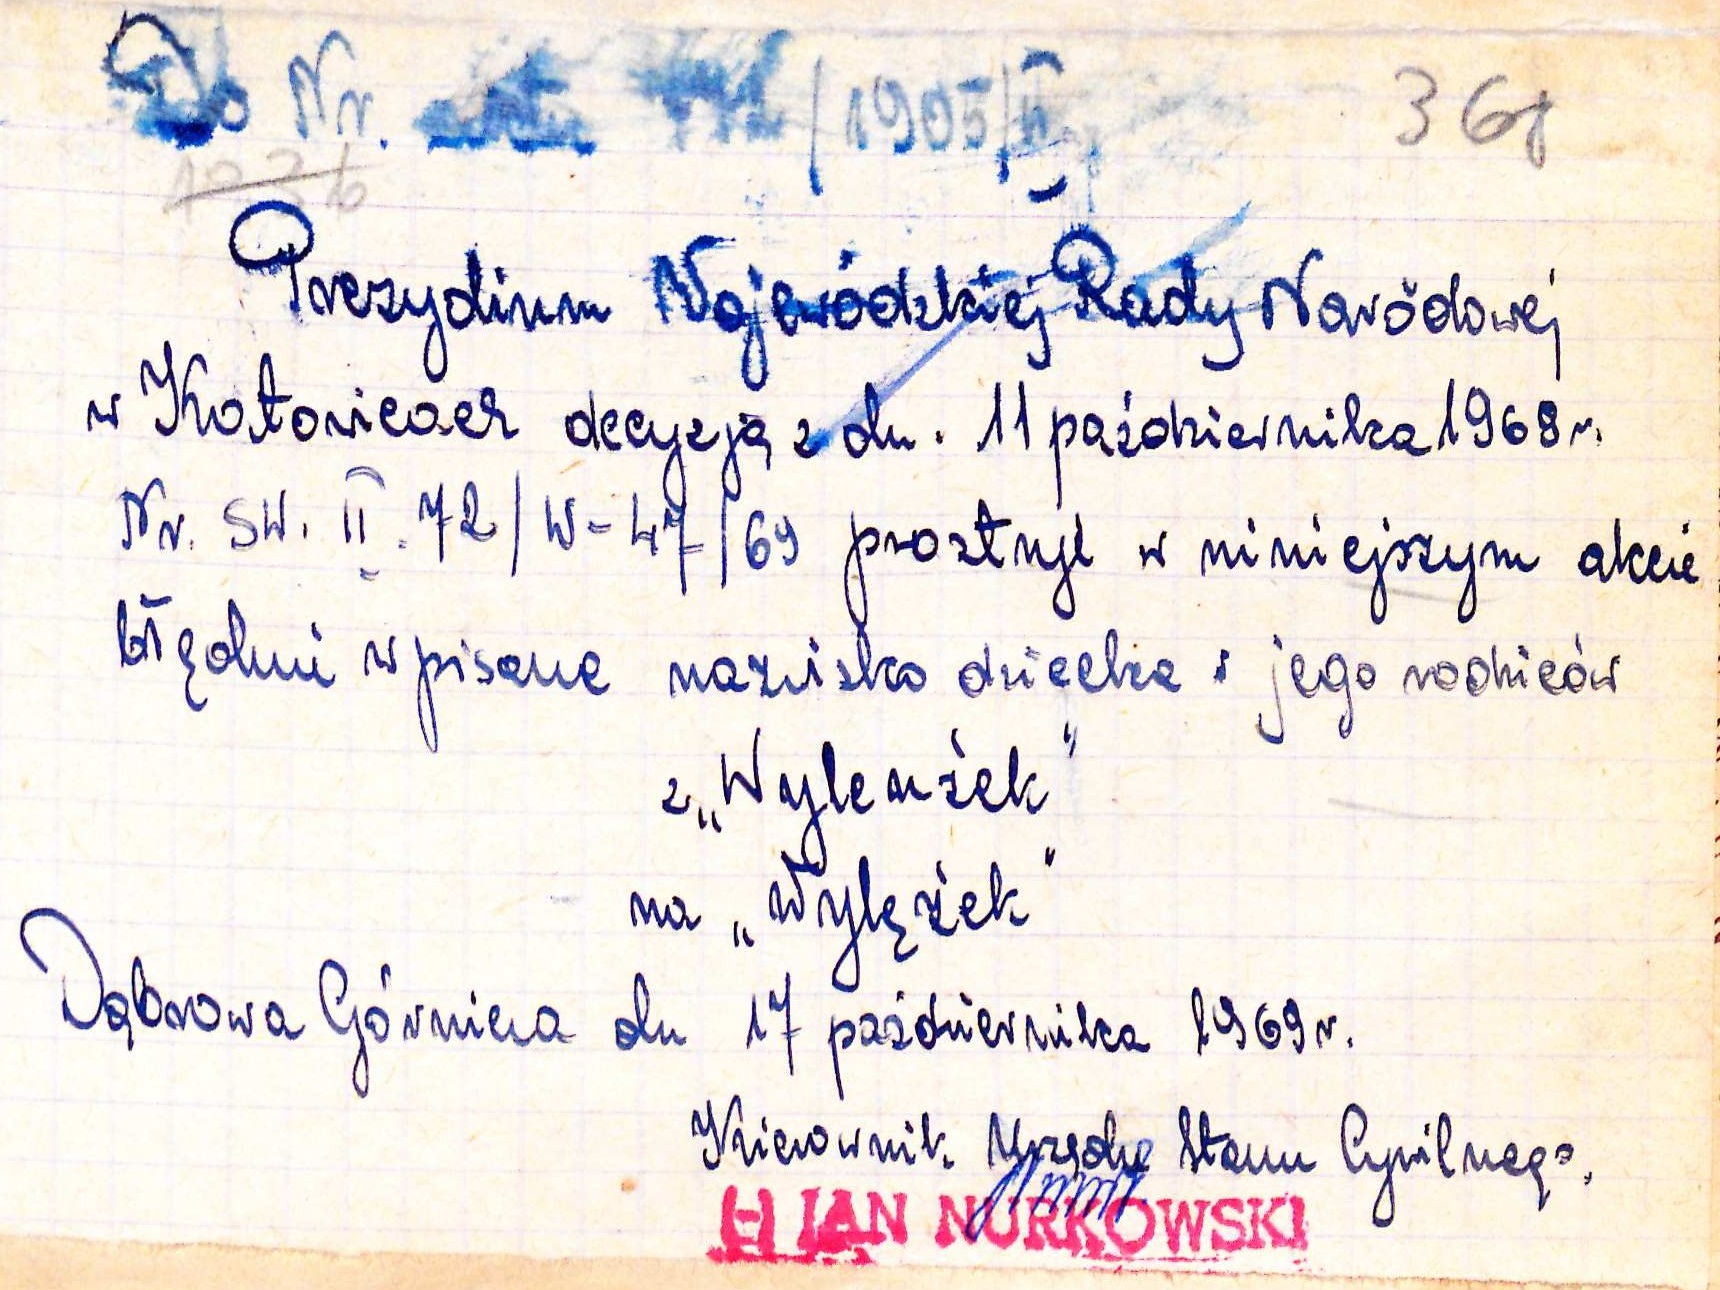 Do Nr. /1905/II
368
1236
Prezydium Wojewódzkiej Rady Narodowej
w Katowicach decyzją z dn. 11 października 1968 r.
Nr. SW. II. 72/W-47/69 prostuje w niniejszym akcie
błędnie wpisane nazwisko dziecka i jego rodziców
z „Wylenżek"
na „Wylężek"
Dąbrowa Górnicza dn 17 października 1969 r.
Kierownik Urzędu Stanu Cywilnego.
(-) JAN NURKOWSKI